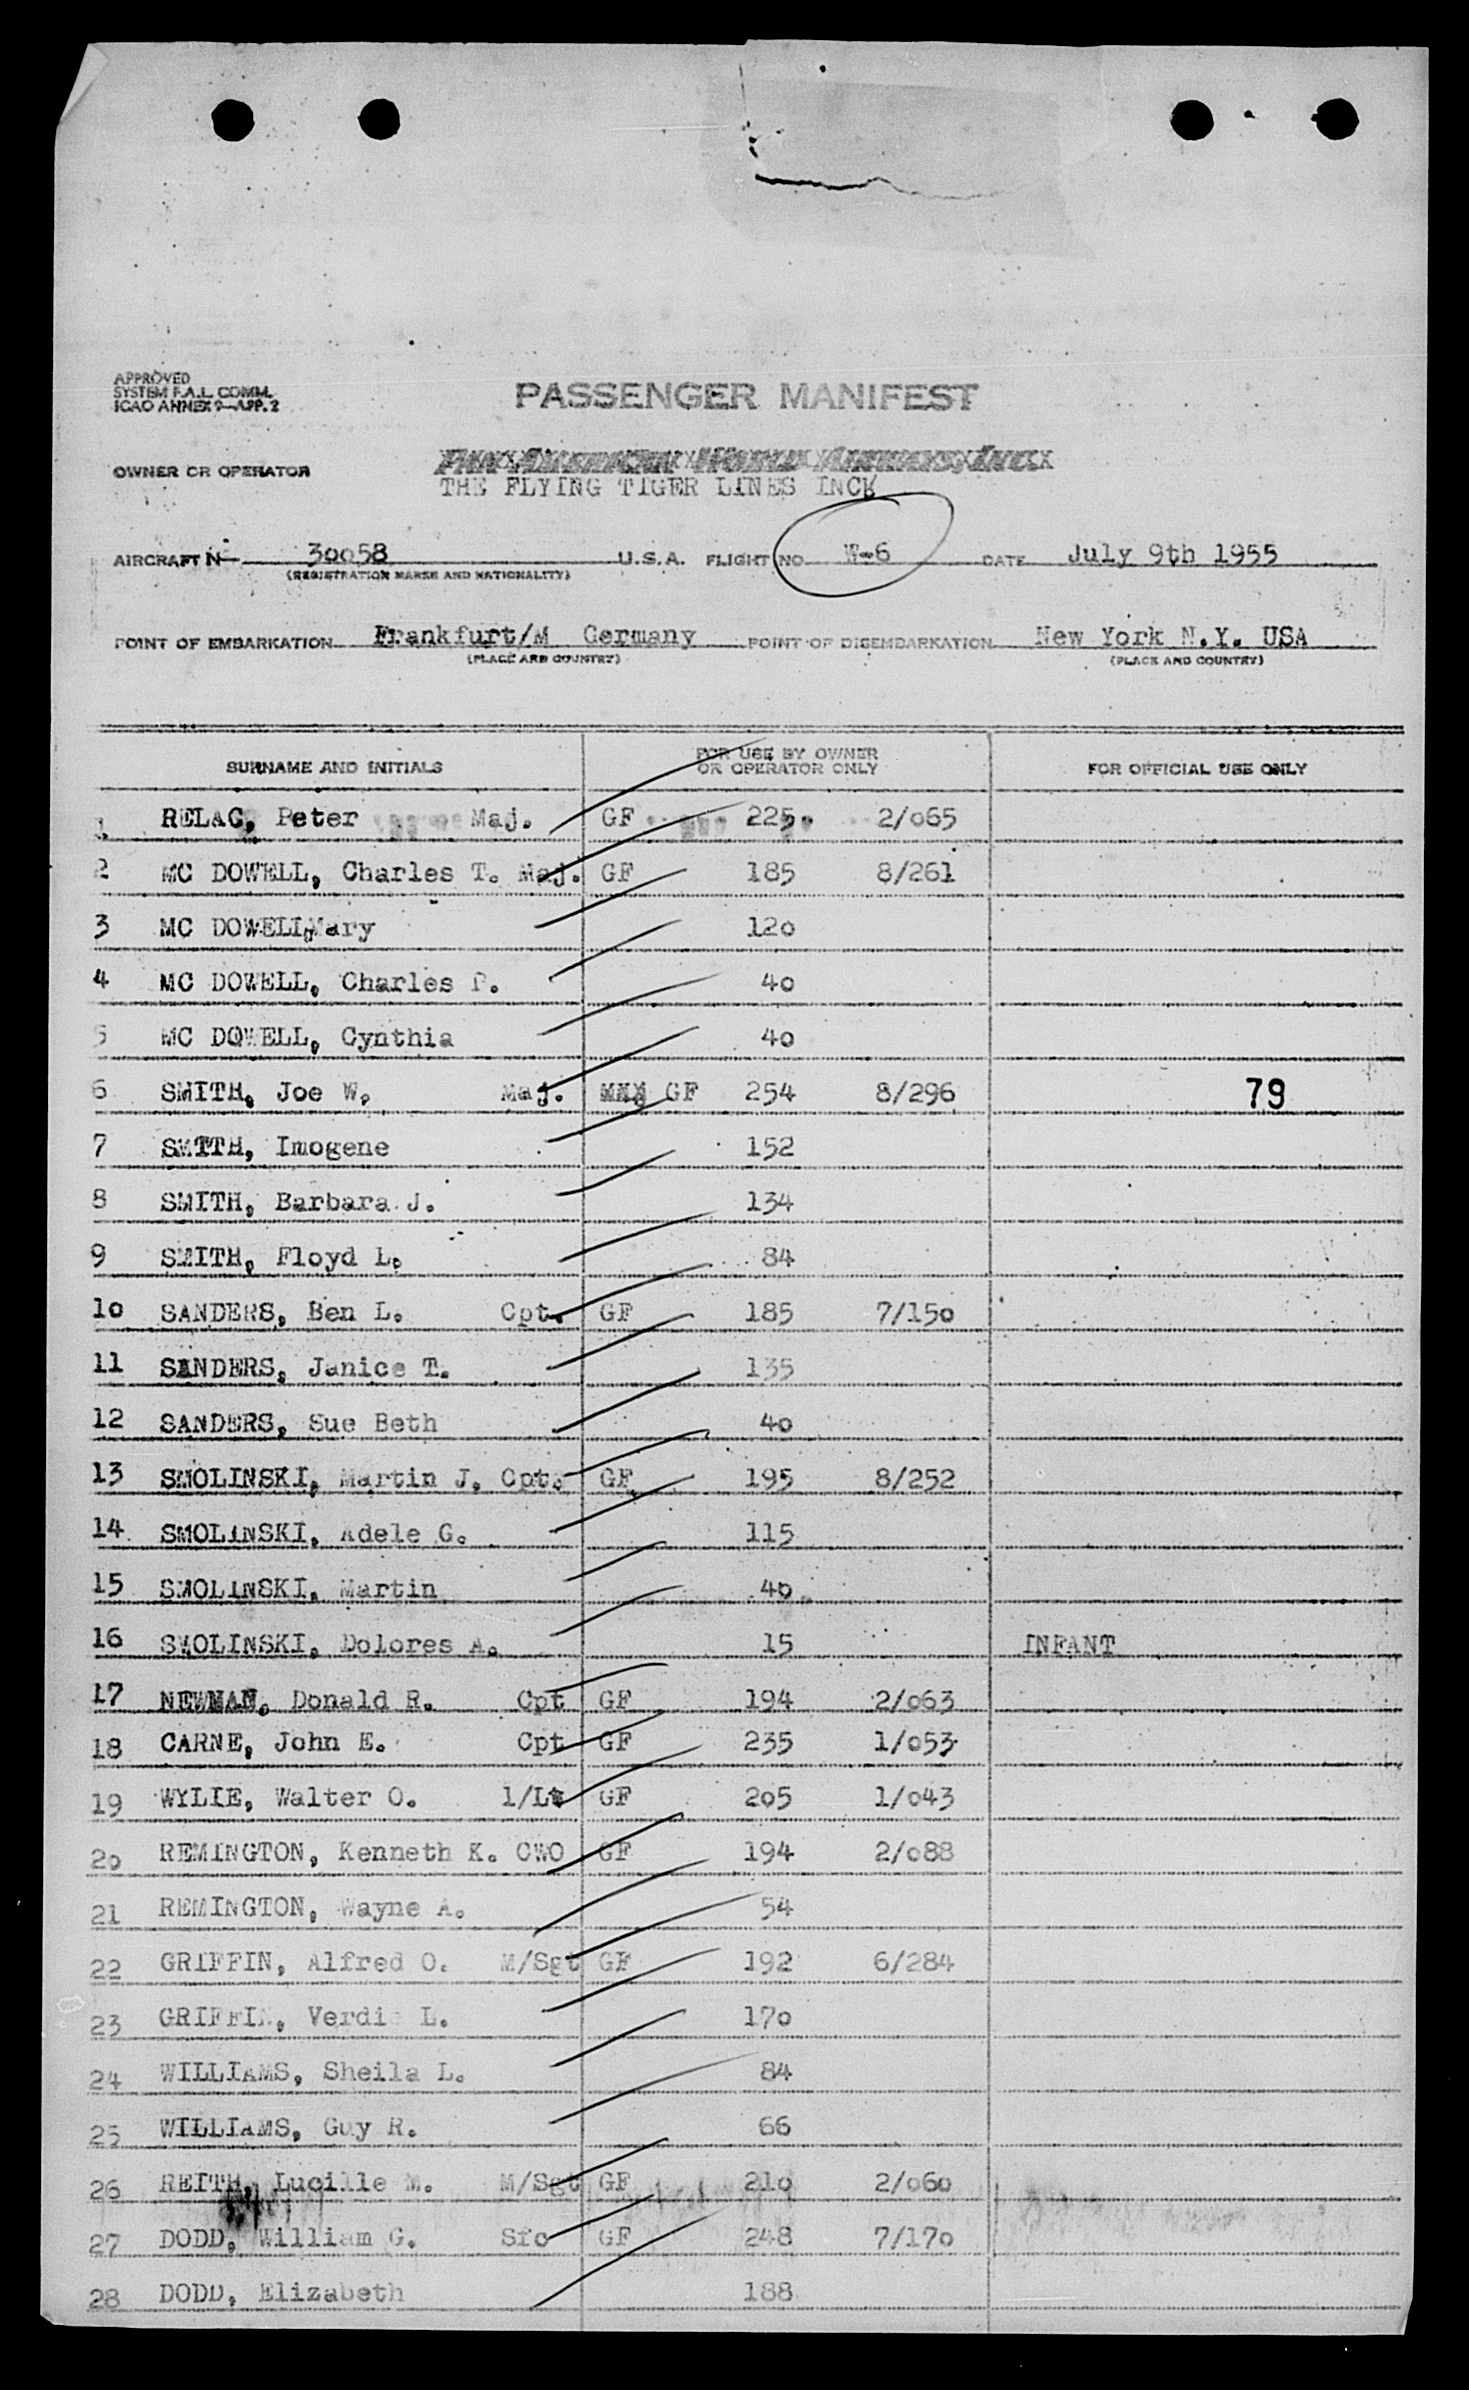 APPROVED
SYSTEM F.A.L. COMM.
ICAO ANNEX 9—APP. 2
PASSENGER MANIFEST
OWNER OR OPERATOR
THE FLYING TIGER LINES INCK
AIRCRAFT N 30058 U.S.A. FLIGHT NO. W-6 DATE July 9th 1955
(REGISTRATION MARKS AND NATIONALITY)
POINT OF EMBARKATION Frankfurt/M Germany POINT OF DISEMBARKATION New York N.Y. USA
(PLACE AND COUNTRY) (PLACE AND COUNTRY)
SURNAME AND INITIALS FOR USE BY OWNER OR OPERATOR ONLY FOR OFFICIAL USE ONLY
1 RELAC, Peter Maj. GF 225 2/065
2 MC DOWELL, Charles T. Maj. GF 185 8/261
3 MC DOWELL,Mary 120
4 MC DOWELL, Charles P. 40
5 MC DOWELL, Cynthia 40
6 SMITH, Joe W. Maj. GF 254 8/296 79
7 SMITH, Imogene 152
8 SMITH, Barbara J. 134
9 SMITH, Floyd L. 84
10 SANDERS, Ben L. Cpt. GF 185 7/150
11 SANDERS, Janice T. 135
12 SANDERS, Sue Beth 40
13 SMOLINSKI, Martin J. Cpt. GF 195 8/252
14 SMOLINSKI, Adele G. 115
15 SMOLINSKI, Martin 40
16 SMOLINSKI, Dolores A. 15 INFANT
17 NEWMAN, Donald R. Cpt GF 194 2/063
18 CARNE, John E. Cpt GF 235 1/053
19 WYLIE, Walter O. 1/Lt GF 205 1/043
20 REMINGTON, Kenneth K. CWO GF 194 2/088
21 REMINGTON, Wayne A. 54
22 GRIFFIN, Alfred O. M/Sgt GF 192 6/284
23 GRIFFIN, Verdie L. 170
24 WILLIAMS, Sheila L. 84
25 WILLIAMS, Guy R. 66
26 REITH, Lucille M. M/Sgt GF 210 2/060
27 DODD, William G. Sfc GF 248 7/170
28 DODD, Elizabeth 188